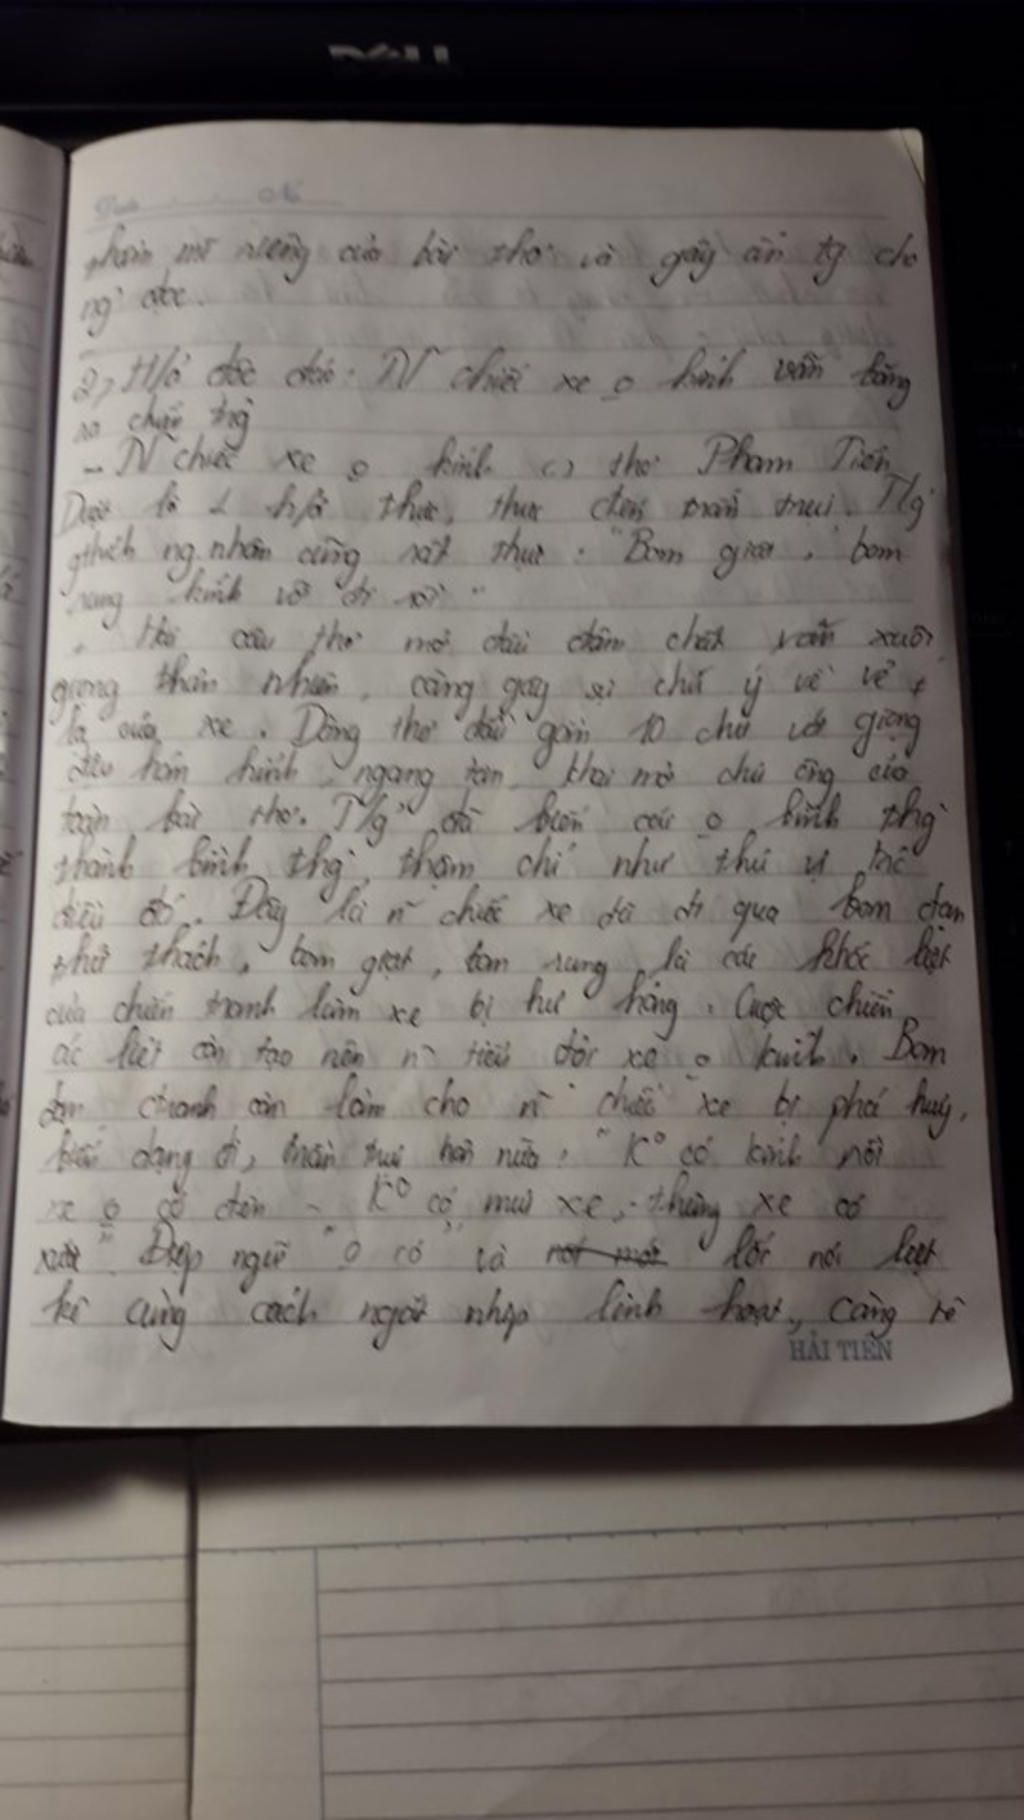 DELL
Date No
thẩm mĩ riêng của bài thơ và gây ấn tg cho
ng` đọc.
2, H/ả độc đáo: N~ chiếc xe o kính vẫn băng
ra chiến trg`
- N~ chiếc xe o kính () thơ Phạm Tiến
Duật là 1 h/ả thực, thực đến trần trụi. T/g
gthích ng. nhân cũng rất thực: "Bom giật, bom
rung kính vỡ đi rồi"
Hai câu thơ mở đầu đậm chất văn xuôi,
giọng thản nhiên, càng gây sự chú ý về vẻ
lạ của xe. Dòng thơ đầu gồm 10 chữ với giọng
điệu hóm hỉnh, ngang tàn, khai mở cho
toàn bài thơ. T/g đã biến cái o bình thg`
thành bình thg`, thậm chí như thú vị
điều đó. Đây là n~ chiếc xe đã đi qua bom đạn
thử thách, bom giật, bom rung, là cái khốc liệt
của chiến tranh làm xe bị hư hỏng. Cuộc chiến
ác liệt còn tạo nên n~ tiểu đội xe o kính. Bom
đạn ctranh còn làm cho n~ chiếc xe bị phá huỷ,
biến dạng đi, trần trụi hơn nữa: "Ko có kính rồi
xe o có đèn - Ko có mui xe, thùng xe có
xước". Điệp ngữ "o có" và lối nói liệt
kê cùng cách ngắt nhịp linh hoạt, càng
HẢI TIẾN